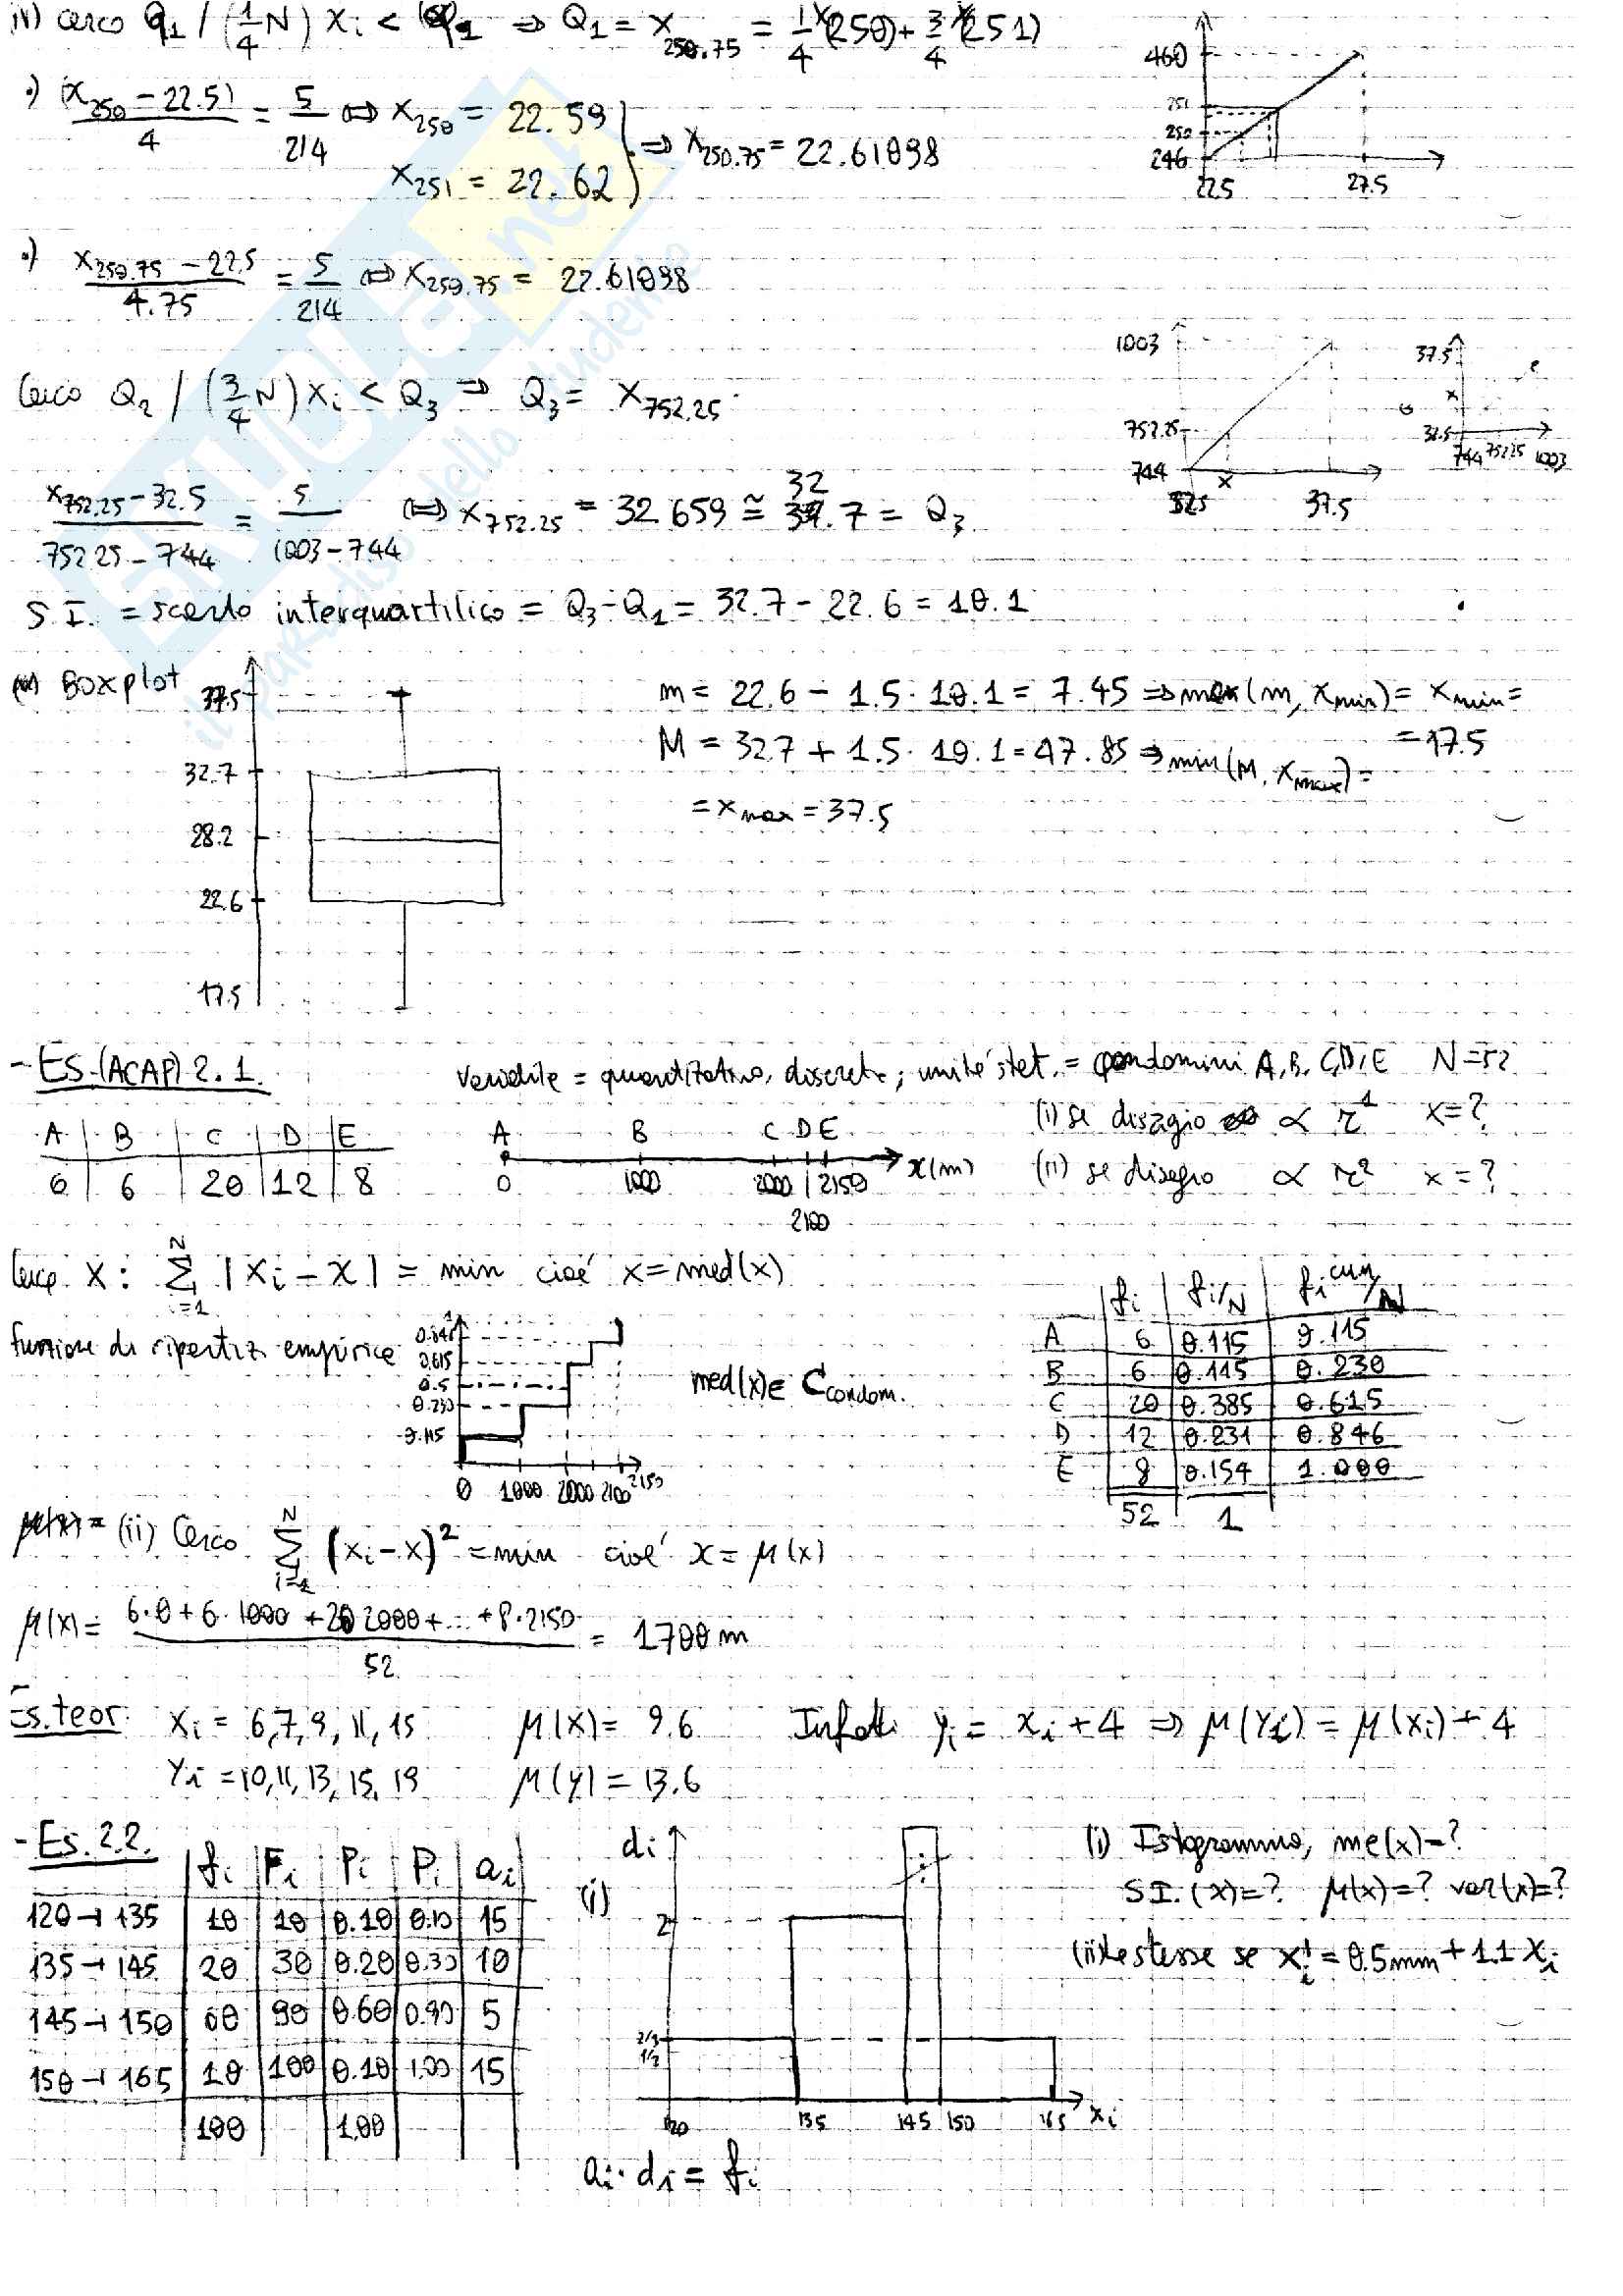 iv) cerco Q₁ / (1/4 N) Xᵢ < Q₁ ⇒ Q₁ = x₂₅₀.₇₅ = 1/4 x(250) + 3/4 x(251)
•) (x₂₅₀ − 22.5)/4 = 5/214 ⇔ x₂₅₀ = 22.59
x₂₅₁ = 22.62 ⇒ x₂₅₀.₇₅ = 22.61098
460
251
250
246
22.5 27.5
•) (x₂₅₀.₇₅ − 22.5)/4.75 = 5/214 ⇔ x₂₅₀.₇₅ = 22.61098
Cerco Q₂ / (3/4 N) Xᵢ < Q₃ ⇒ Q₃ = x₇₅₂.₂₅
1003
752.25
744
32.5 x 37.5
37.5
x
32.5
744 752.25 1003
(x₇₅₂.₂₅ − 32.5)/(752.25 − 744) = 5/(1003 − 744) ⇔ x₇₅₂.₂₅ = 32.659 ≅ 32.7 = Q₃
S.I. = scarto interquartilico = Q₃ − Q₁ = 32.7 − 22.6 = 10.1
Boxplot
37.5
32.7
28.2
22.6
17.5
m = 22.6 − 1.5 · 10.1 = 7.45 ⇒ max(m, xmin) = xmin =
= 17.5
M = 32.7 + 1.5 · 10.1 = 47.85 ⇒ min(M, xmax) =
= xmax = 37.5
- ES.(ACAP) 2.1.
Variabile = quantitativa, discreta; unità stat. = condomini A, B, C, D, E N = 52
A | B | C | D | E
6 | 6 | 20 | 12 | 8
A B C D E
0 1000 2000 2150 x(m)
2100
(i) se disagio ∝ r¹ x = ?
(ii) se disagio ∝ r² x = ?
Cerco x : Σᵢ₌₁ᴺ |xᵢ − x| = min cioè x = med(x)
funzione di ripartiz. empirica
1
0.846
0.615
0.5
0.230
0.115
0 1000 2000 2100 2150
med(x) ∈ C condom.
fᵢ | fᵢ/N | fᵢcum/N
A | 6 | 0.115 | 0.115
B | 6 | 0.115 | 0.230
C | 20 | 0.385 | 0.615
D | 12 | 0.231 | 0.846
E | 8 | 0.154 | 1.000
52 | 1
(ii) Cerco Σᵢ₌₁ᴺ (xᵢ − x)² = min cioè x = μ(x)
μ(x) = (6·0 + 6·1000 + 20 2000 + ... + 8·2150)/52 = 1700 m
Es. teor xᵢ = 6, 7, 9, 11, 15 μ(x) = 9.6 Infatti yᵢ = xᵢ + 4 ⇒ μ(yᵢ) = μ(xᵢ) + 4
Yᵢ = 10, 11, 13, 15, 19 μ(y) = 13.6
- Es. 2.2.
fᵢ | Fᵢ | pᵢ | Pᵢ | aᵢ
120 ⊣ 135 | 10 | 10 | 0.10 | 0.10 | 15
135 ⊣ 145 | 20 | 30 | 0.20 | 0.30 | 10
145 ⊣ 150 | 60 | 90 | 0.60 | 0.90 | 5
150 ⊣ 165 | 10 | 100 | 0.10 | 1.00 | 15
100 | 1.00
(i)
dᵢ
2
2/3
1/2
120 135 145 150 165 xᵢ
aᵢ · dᵢ = fᵢ
(i) Istogramma, me(x) = ?
S.I.(x) = ? μ(x) = ? var(x) = ?
(ii) le stesse se xᵢ' = 0.5mm + 1.1 xᵢ